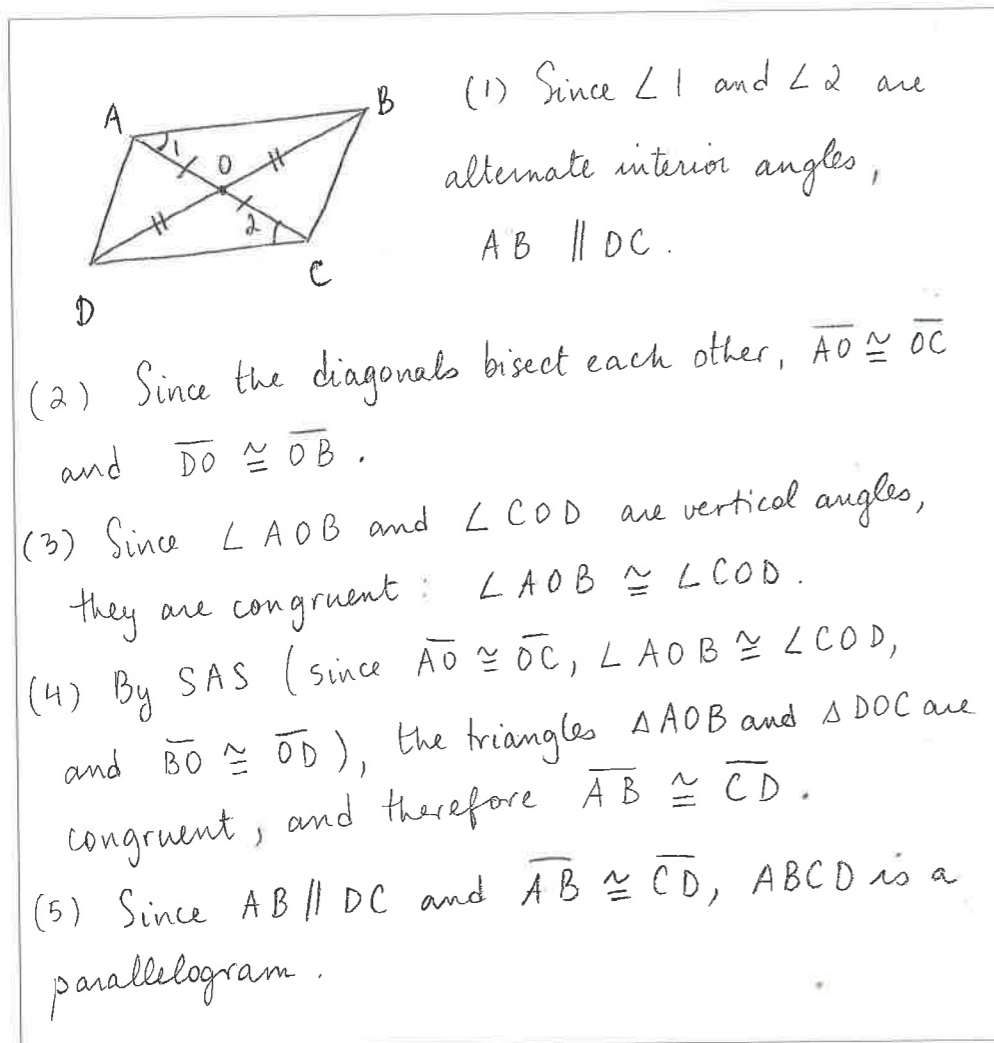 A
B
1
O
2
C
D
(1) Since ∠1 and ∠2 are
alternate interior angles,
AB ∥ DC.
(2) Since the diagonals bisect each other, A̅O̅ ≅ O̅C̅
and D̅O̅ ≅ O̅B̅.
(3) Since ∠AOB and ∠COD are vertical angles,
they are congruent: ∠AOB ≅ ∠COD.
(4) By SAS (since A̅O̅ ≅ O̅C̅, ∠AOB ≅ ∠COD,
and B̅O̅ ≅ O̅D̅), the triangles △AOB and △DOC are
congruent, and therefore A̅B̅ ≅ C̅D̅.
(5) Since AB ∥ DC and A̅B̅ ≅ C̅D̅, ABCD is a
parallelogram.